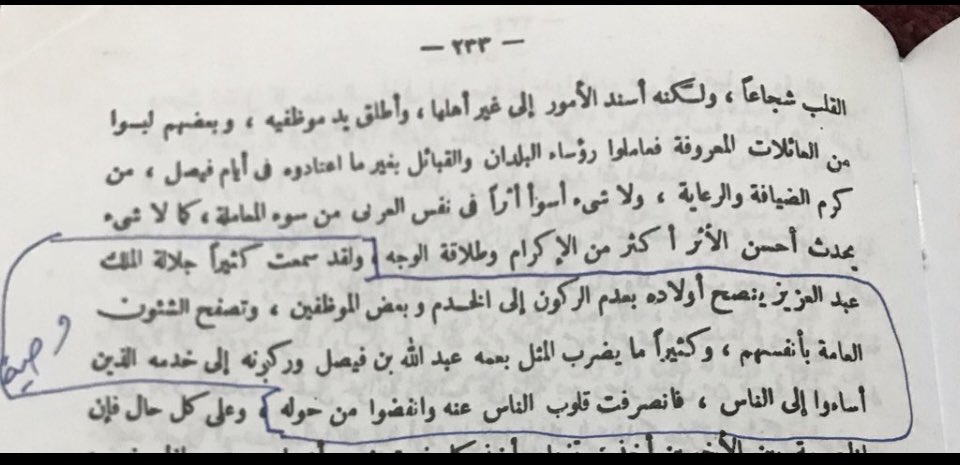 — ٢٣٣ —
القلب شجاعاً ، ولكنه أسند الأمور إلى غير أهلها ، وأطلق يد موظفيه ، وبعضهم ليسوا
من العائلات المعروفة فعاملوا رؤساء البلدان والقبائل بغير ما اعتادوه فى أيام فيصل ، من
كرم الضيافة والرعاية ، ولا شىء أسوأ أثراً فى نفس العربى من سوء المعاملة ، كما لا شىء
يحدث أحسن الأثر أكثر من الإكرام وطلاقة الوجه . ولقد سمعت كثيراً جلالة الملك
عبد العزيز ينصح أولاده بعدم الركون إلى الخدم وبعض الموظفين ، وتصفح الشئون
العامة بأنفسهم ، وكثيراً ما يضرب المثل بعمه عبد الله بن فيصل وركونه إلى خدمه الذين
أساءوا إلى الناس ، فانصرفت قلوب الناس عنه وانفضوا من حوله ، وعلى كل حال فإن
وصية